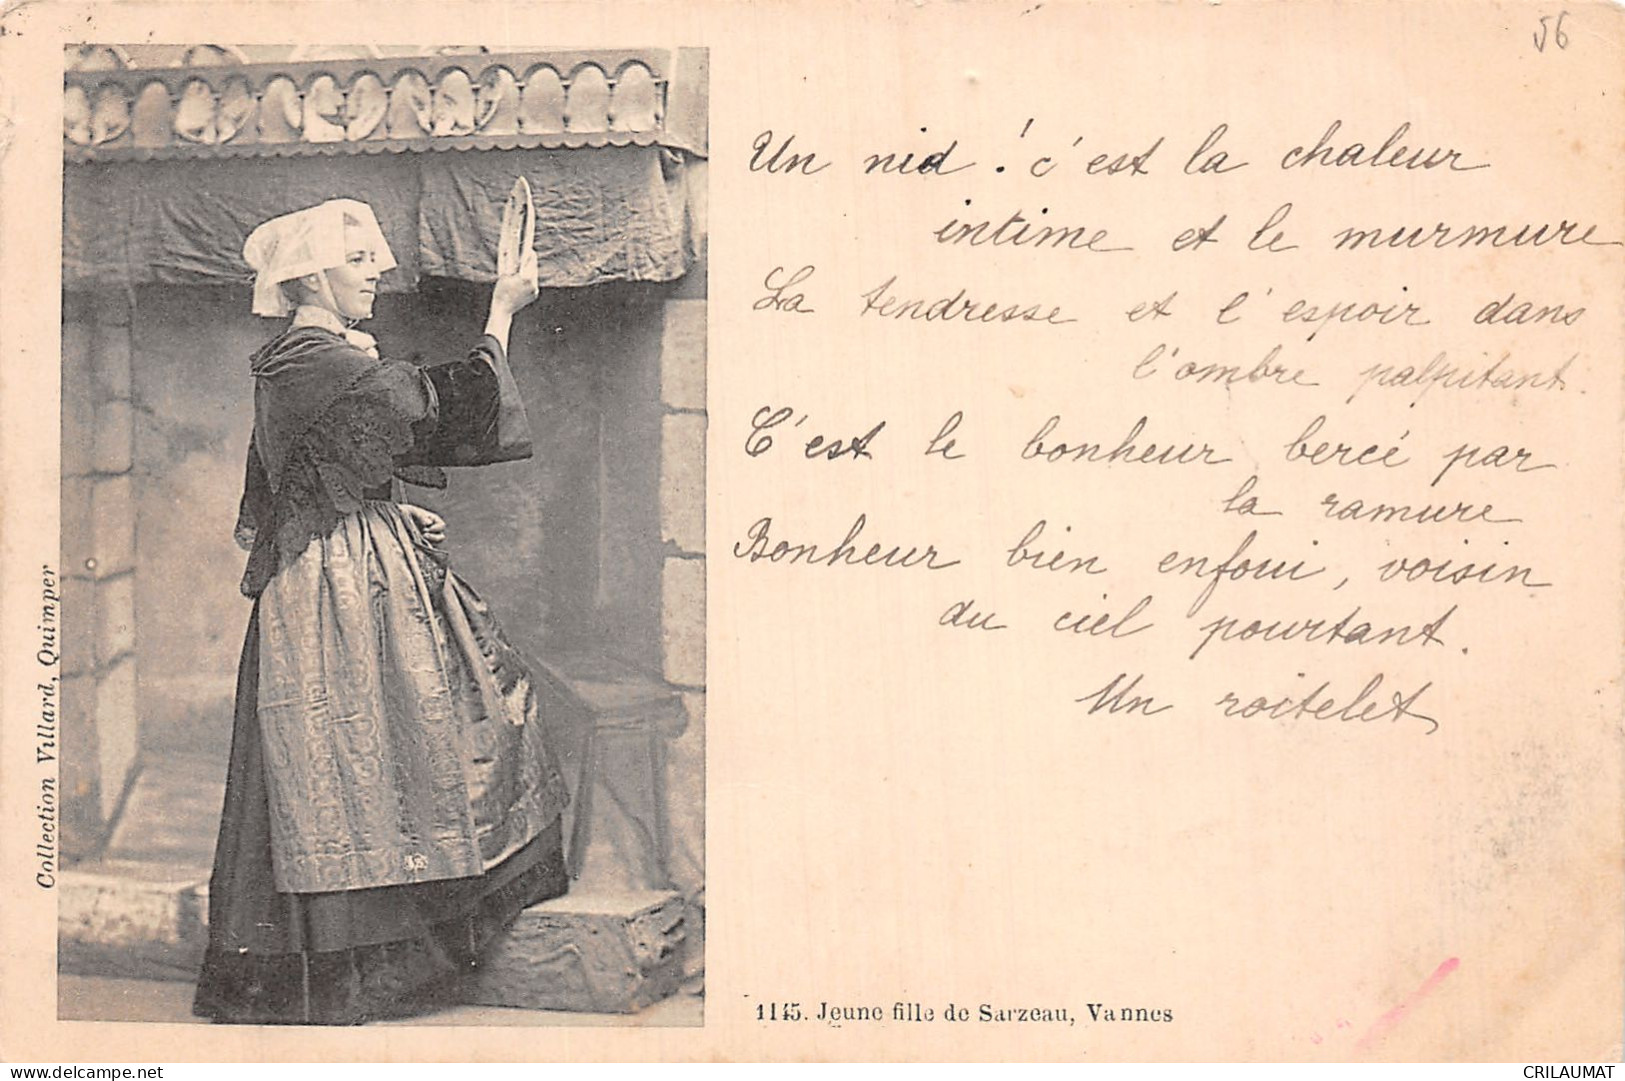 56
Un nid ! c'est la chaleur
intime et le murmure
La tendresse et l'espoir dans
l'ombre palpitant.
C'est le bonheur bercé par
la ramure
Bonheur bien enfoui, voisin
du ciel pourtant.
Un roitelet
Collection Villard, Quimper
1145. Jeune fille de Sarzeau, Vannes
delcampe.net
CRILAUMAT